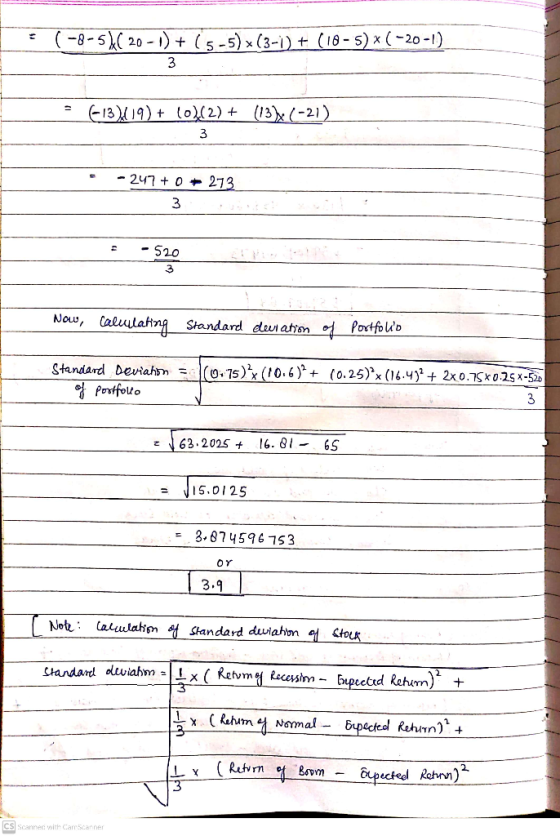 = (-8-5)x(20-1) + (5-5)x(3-1) + (18-5)x(-20-1)
3
= (-13)x(19) + (0)x(2) + (13)x(-21)
3
= -247 + 0 - 273
3
= -520
3
Now, Calculating Standard deviation of Portfolio
Standard Deviation = √(0.75)²x(10.6)² + (0.25)²x(16.4)² + 2x0.75x0.25x-520
of portfolio
3
= √63.2025 + 16.81 - 65
= √15.0125
= 3.874596753
or
3.9
[Note: Calculation of standard deviation of Stock
Standard deviation = √1/3 x (Return of Recession - Expected Return)² +
1/3 x (Return of Normal - Expected Return)² +
1/3 x (Return of Boom - Expected Return)²
CS Scanned with CamScanner